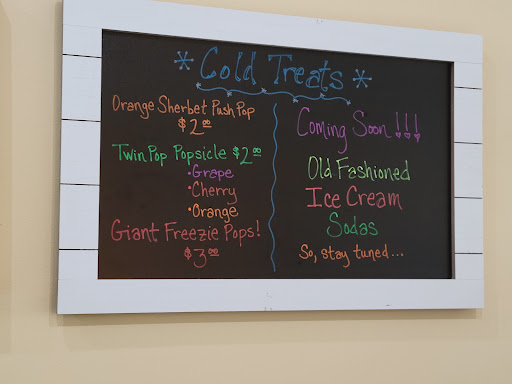 * Cold Treats *
Orange Sherbet Push Pop
$2.00
Twin Pop Popsicle $2.00
•Grape
•Cherry
•Orange
Giant Freezie Pops!
$3.00
Coming Soon!!!
Old Fashioned
Ice Cream
Sodas
So, stay tuned...